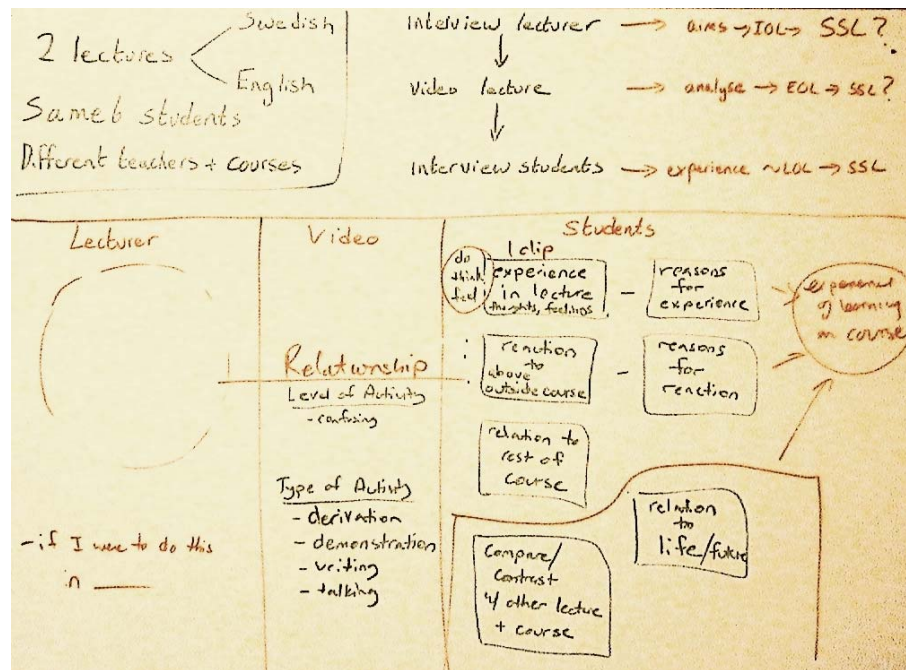 2 lectures
Swedish
English
Same 6 students
Different teachers + courses
Interview lecturer → aims → IOL → SSL?
Video lecture → analyse → EOL → SSL?
Interview students → experience ~ LOL → SSL
Lecturer
- if I were to do this
in ____
Video
Relationship
Level of Activity
- confusing
Type of Activity
- derivation
- demonstration
- writing
- talking
Students
1 clip
do
think
feel
experience
in lecture
thoughts, feelings
reasons
for
experience
reaction
to
above
outside course
reasons
for
reaction
relation to
rest of
course
experience
of learning
in course
Compare/
contrast
w/ other lecture
+ course
relation
to
life/future